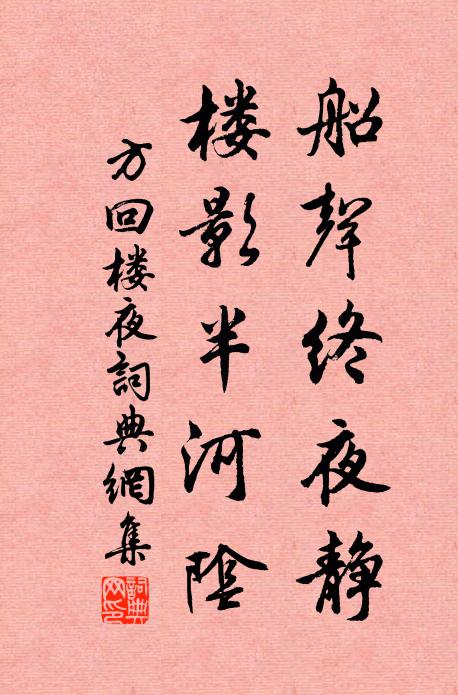 船聲终夜静
楼影半河陰
方回楼夜詞典網集
詞典網印